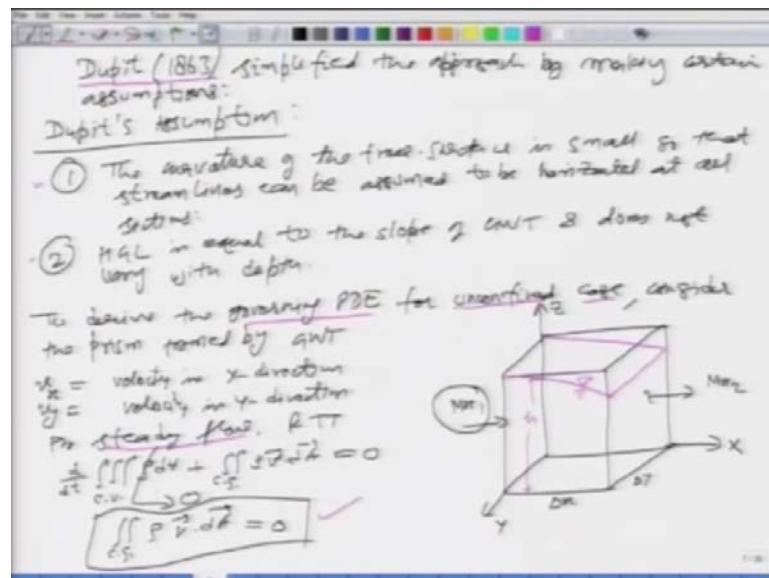 Dupit (1863) simplified the approach by making certain
assumptions:
Dupit's Assumption:
① The curvature of the free-surface is small so that
streamlines can be assumed to be horizontal at all
sections.
② HGL is equal to the slope of GWT & does not
vary with depth.
To derive the governing PDE for unconfined case, consider
the prism formed by GWT
v_x = velocity in x-direction
v_y = velocity in y-direction
For steady flow, RTT
d/dt ∭ ρ dV + ∬ ρ V⃗ . dA⃗ = 0
c.v. → 0 c.s.
∬ ρ V⃗ . dA⃗ = 0
c.s.
Z
h
X
Y
Δx
Δy